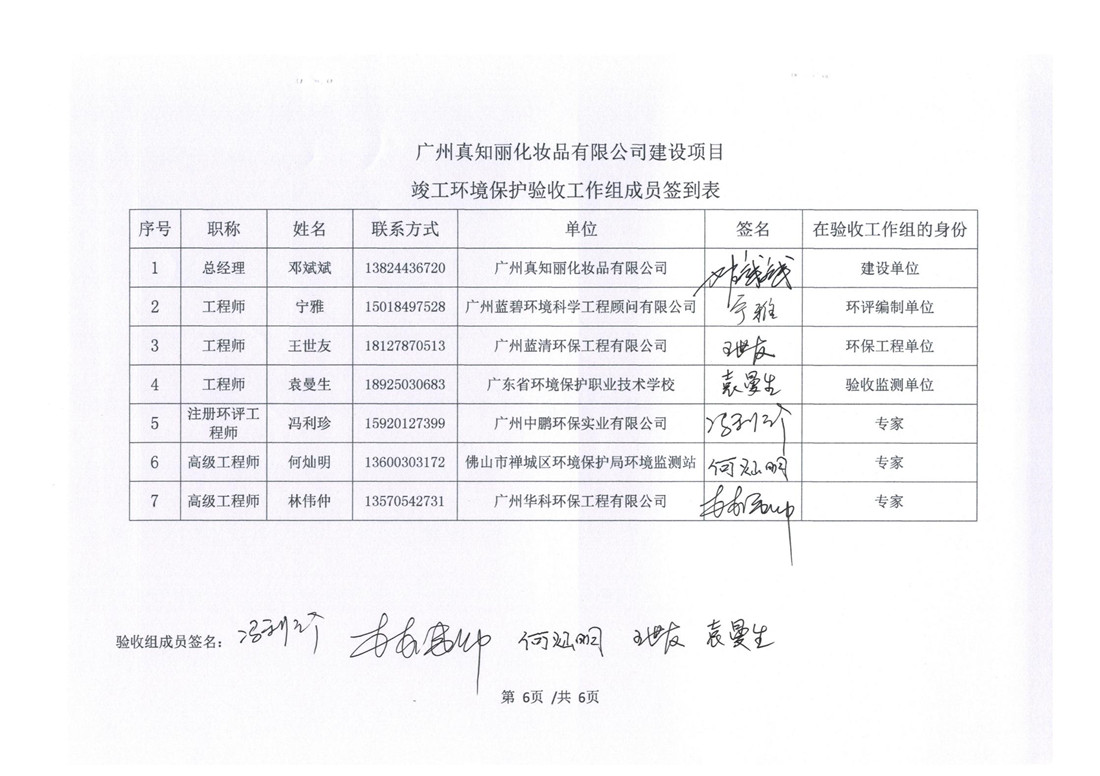 广州真知丽化妆品有限公司建设项目
竣工环境保护验收工作组成员签到表
序号 职称 姓名 联系方式 单位 签名 在验收工作组的身份
1 总经理 邓斌斌 13824436720 广州真知丽化妆品有限公司 邓斌斌 建设单位
2 工程师 宁雅 15018497528 广州蓝碧环境科学工程顾问有限公司 宁雅 环评编制单位
3 工程师 王世友 18127870513 广州蓝清环保工程有限公司 王世友 环保工程单位
4 工程师 袁曼生 18925030683 广东省环境保护职业技术学校 袁曼生 验收监测单位
5 注册环评工程师 冯利珍 15920127399 广州中鹏环保实业有限公司 冯利珍 专家
6 高级工程师 何灿明 13600303172 佛山市禅城区环境保护局环境监测站 何灿明 专家
7 高级工程师 林伟仲 13570542731 广州华科环保工程有限公司 林伟仲 专家
验收组成员签名: 冯利珍 林伟仲 何灿明 王世友 袁曼生
第 6页 /共 6页